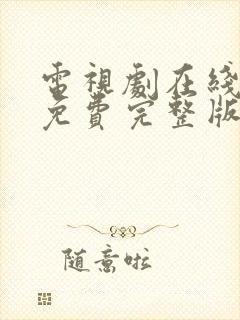 電視劇在綫
免費完整版
随意啦